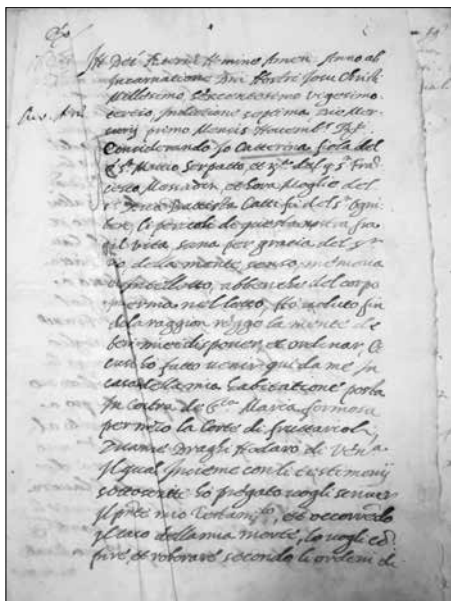 In Dei Eterni Nomine Amen. Anno ab
Incarnatione Dni Nostri Jesu Christi
Millesimo Sexcentesimo vigesimo
tertio, Inditione septima, die Mer-
curij primo Mensis Novemb.
Considerando Io Catterina fiola del
q. S.r Mattio
et hora Moglie del
Battista Catti fu del s.r
ben, li pericoli de questa nostra fra
gil vita, sana per gratia del s.r
Dio della mente, senso, memoria
et intelletto, abbenche del corpo
inferma nel letto, Ho voluto fin
che la raggion regge la mente de
beni miei disponer, et ordinar,
ho fatto venir qui da me in
casa della mia habitatione posta
in contrà de S.ta Maria formosa
per mezo la Corte di fruttarioli,
Draghi Nodaro di Ven.a
Il qual insieme con li testimonij
sottoscritti ho pregato vogli scriver
il p.nte mio Testam.to, et occorrendo
il caso della mia morte, lo vogli
et roborare secondo li ordeni di